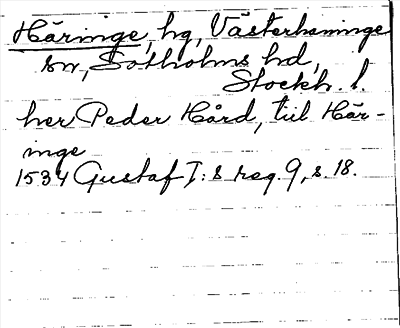 Häringe, hg, Västerhaninge
sn, Sotholms hd,
Stockh. l.
her Peder Hård, tiil Här-
inge
1534 Gustaf I:s reg. 9, s. 18.